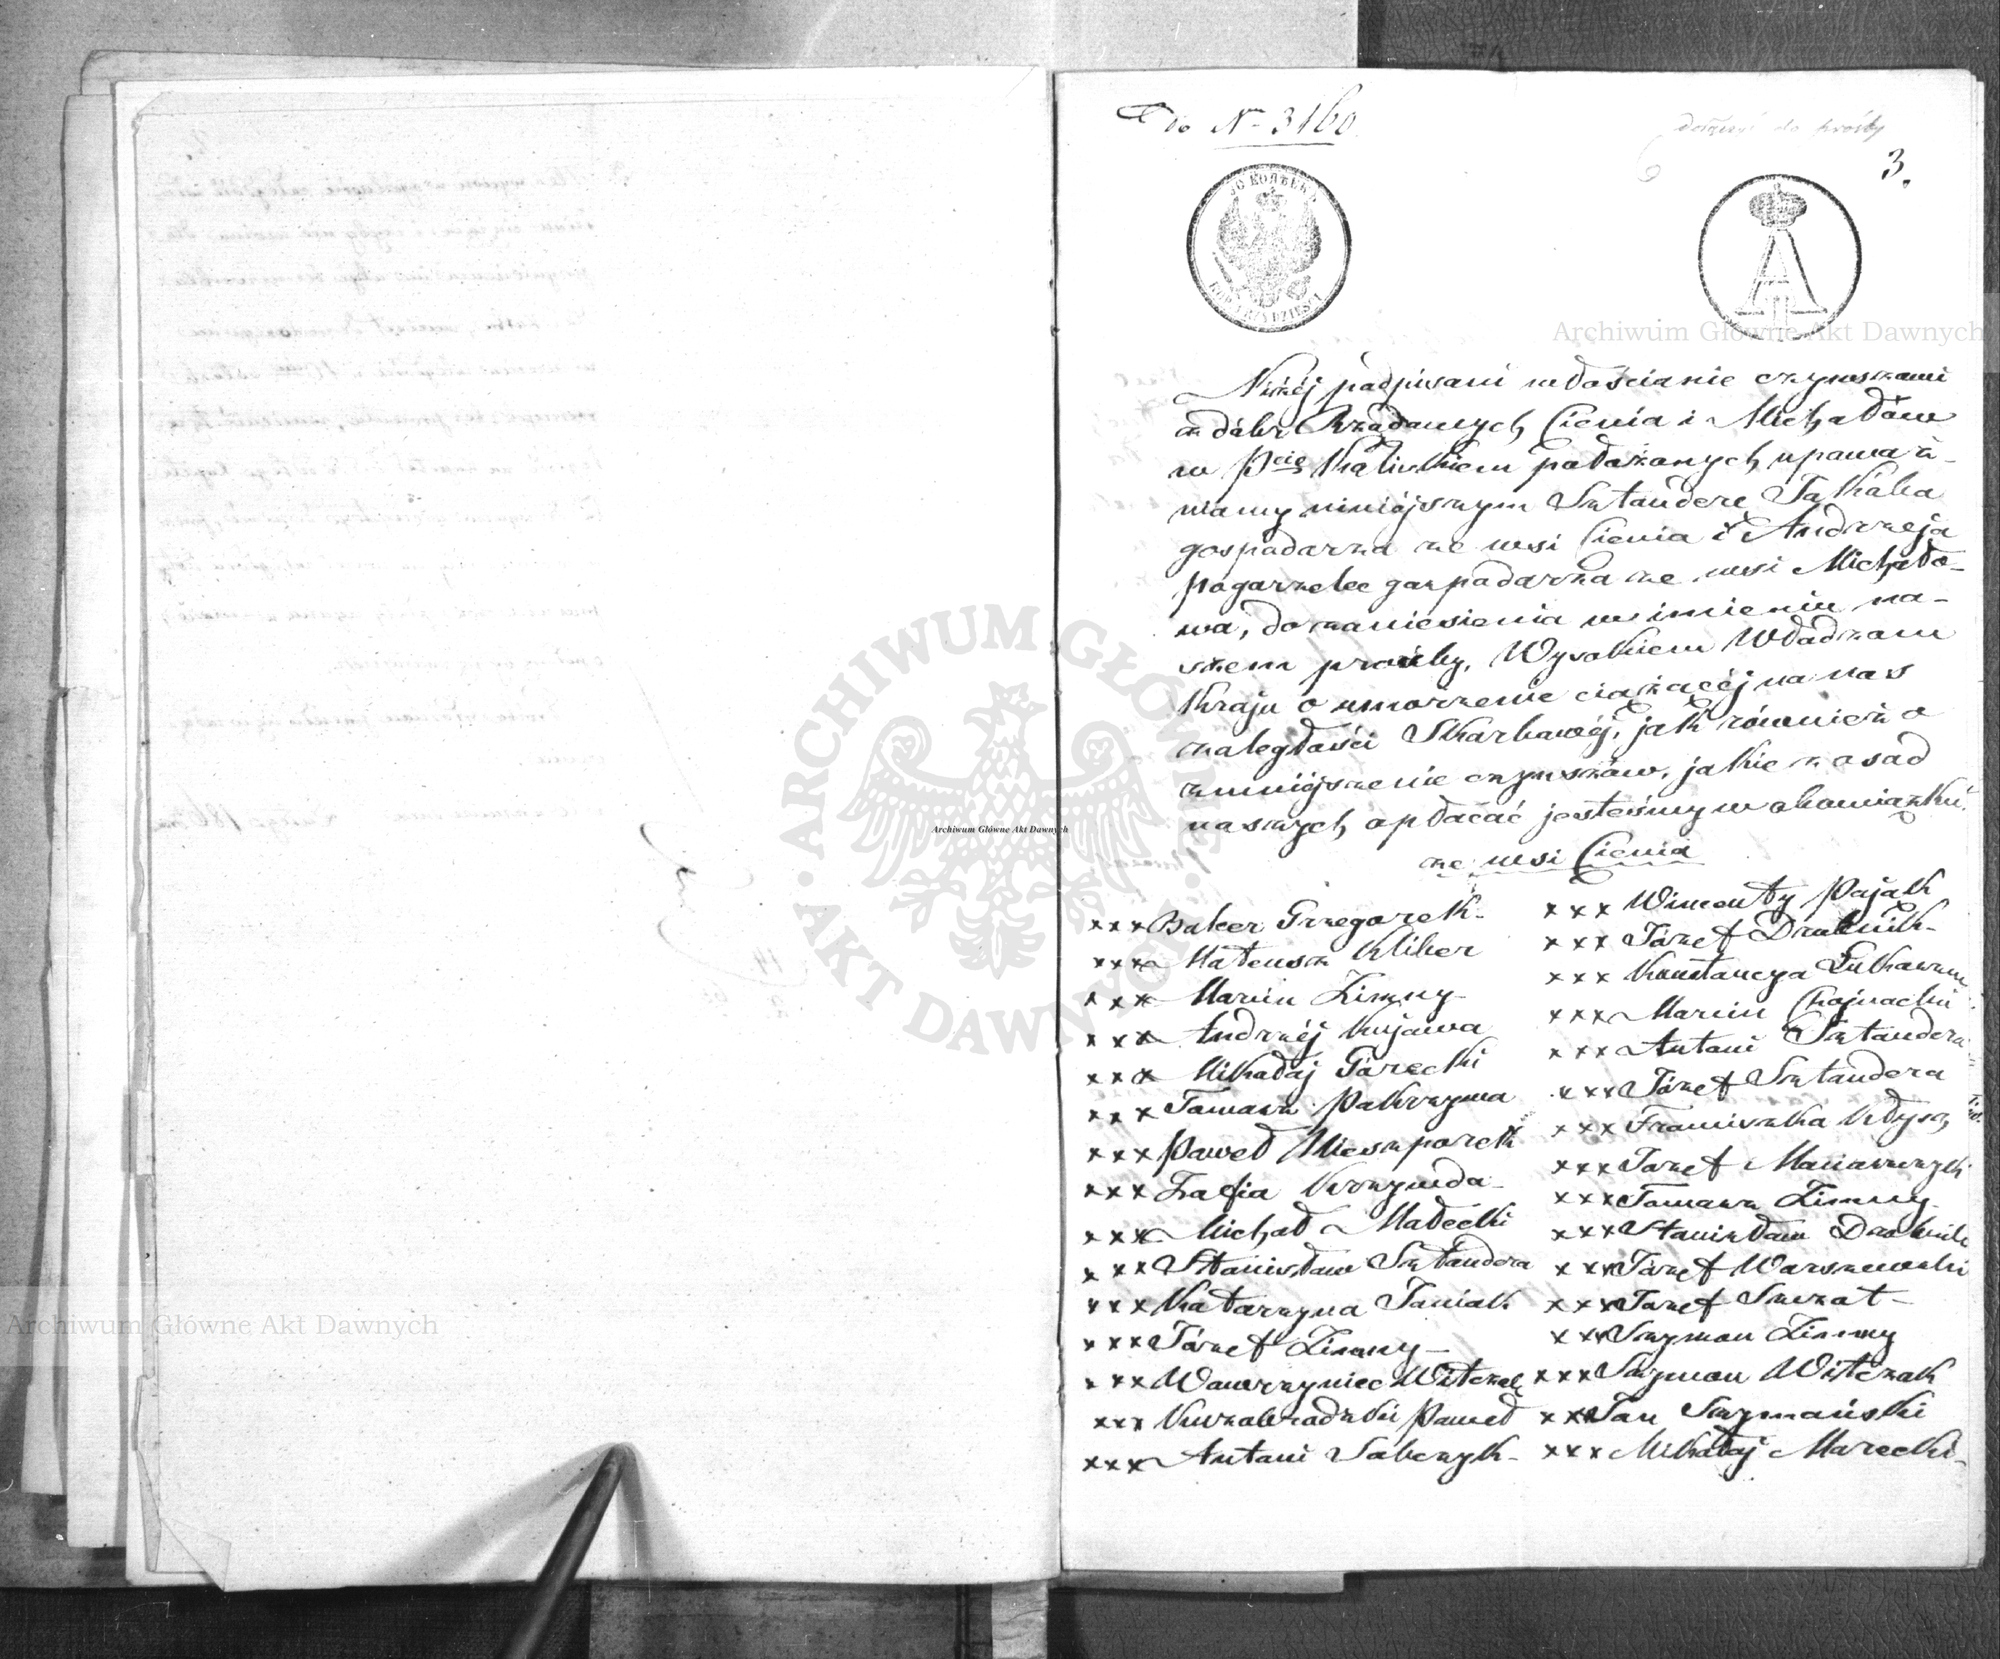 do № 3160
dołączyć do prośby
3.
30 КОПѢЕКЪ
KOP. TRZYDZIEŚCI
Niżéj podpisani włościanie czynszowi
z dóbr Rządowych Cienia i Michałów
w Pcie Kaliskiem położonych, upoważ-
niamy niniéjszym Sztanderę Jakóba
gospodarza ze wsi Cienia i Andrzeja
Pogorzelec gospodarza ze wsi Michało-
wa, do zaniesienia w imieniu na-
szem prośby, Wysokiem Władzom
Kraju o umorzenie ciążącéj na nas
zaległości Skarbowéj, jak również o
zmniéjszenie czynszów, jakie z osad
naszych opłacać jesteśmy w obowiązku.
ze wsi Cienia
xxx Balcer Grzegorek
xxx Mateusz Kliber
xxx Marcin Zimny
xxx Andrzéj Kujawa
xxx Mikołaj Górecki
xxx Tomasz Pakrzyma
xxx Paweł Nieszporek
xxx Zofia Krzywda
xxx Michał Małecki
xxx Stanisław Sztandera
xxx Katarzyna Janiak
xxx Józef Zimny
xxx Wawrzyniec Witczak
xxx Paweł
xxx Antoni Sobczyk
xxx Wincenty Pająk
xxx Józef Drobnik
xxx Konstancya
xxx Marcin Chojnacki
xxx Antoni Sztandera
xxx Józef Sztandera
xxx Franciszka Kłysz
xxx Józef
xxx Tomasz Zimny
xxx Stanisław Drobnik
xxx Józef Warszewski
xxx Józef Szczot
xxx Szymon Zimny
xxx Szymon Witczak
xxx Jan Szymański
xxx Mikołaj Marecki
Archiwum Główne Akt Dawnych
Archiwum Główne Akt Dawnych
Archiwum Główne Akt Dawnych
ARCHIWUM GŁÓWNE AKT DAWNYCH